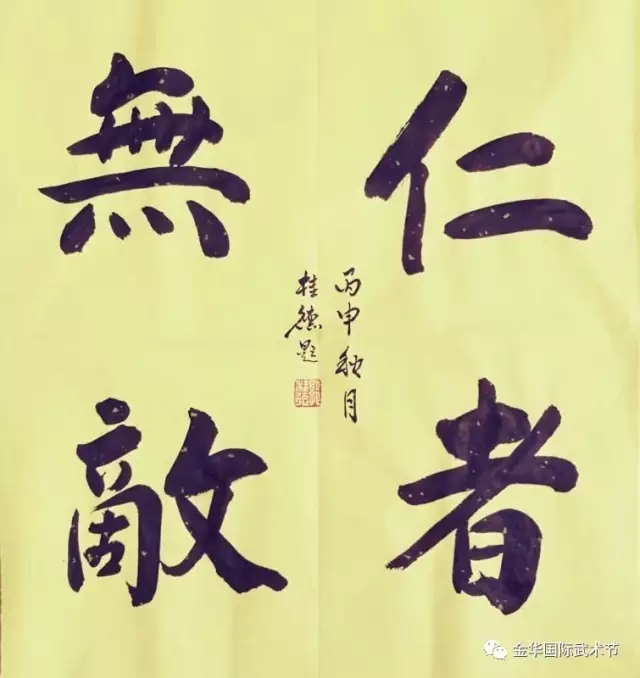 仁者
無敵
丙申秋月
桂德題
金华国际武术节